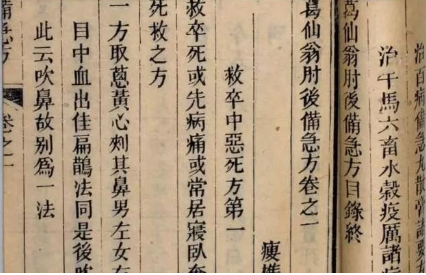 治百病備急丸散常備要方
治牛馬六畜水穀疫厲諸病
葛仙翁肘後備急方目錄終
葛仙翁肘後備急方卷之一
瘦樵
救卒中惡死方第一
救卒死或先病痛或常居寢臥奄
死救之方
一方取葱黃心刾其鼻男左女右
目中血出佳扁鵲法同是後吹
此云吹鼻故別爲一法
備急方 卷之一